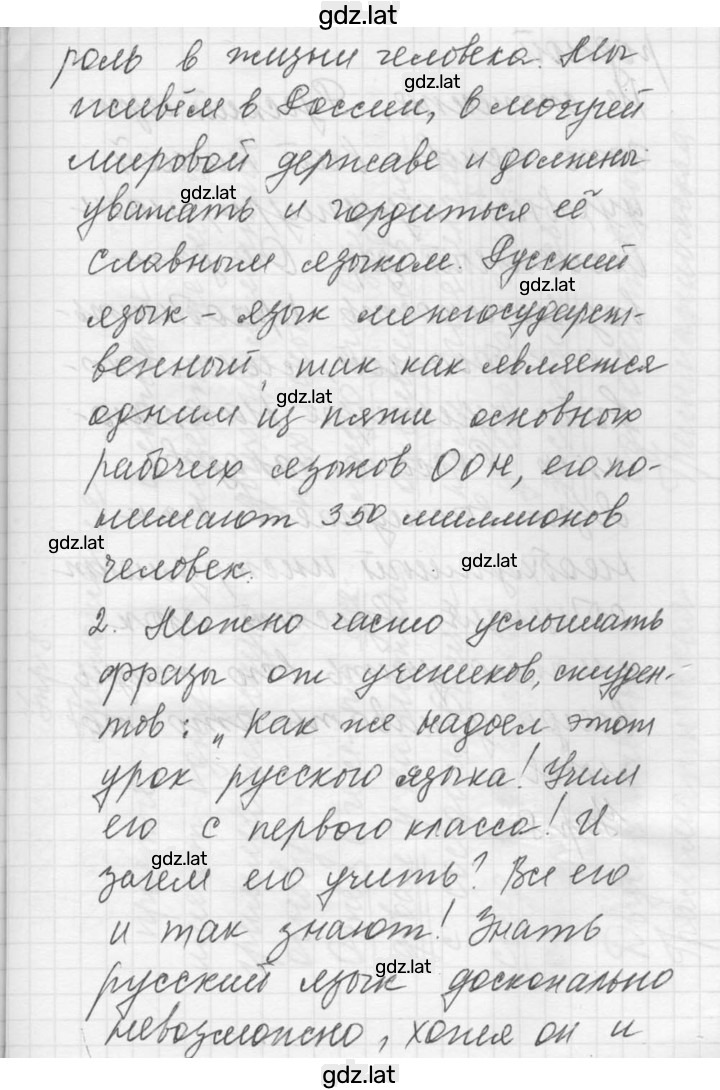 gdz.lat
роль в жизни человека. Мы
gdz.lat
живём в России, в могучей
мировой державе и должны
gdz.lat
уважать и гордиться её
славным языком. Русский
gdz.lat
язык - язык межгосударст-
венный, так как является
gdz.lat
одним из пяти основных
рабочих языков ООН, его по-
нимают 350 миллионов
gdz.lat
gdz.lat
человек.
2. Можно часто услышать
фразы от учеников, студен-
тов: „Как же надоел этот
урок русского языка! Учим
его с первого класса! И
gdz.lat
зачем его учить? Все его
и так знают! Знать
gdz.lat
русский язык досконально
невозможно, хотя он и
gdz.lat